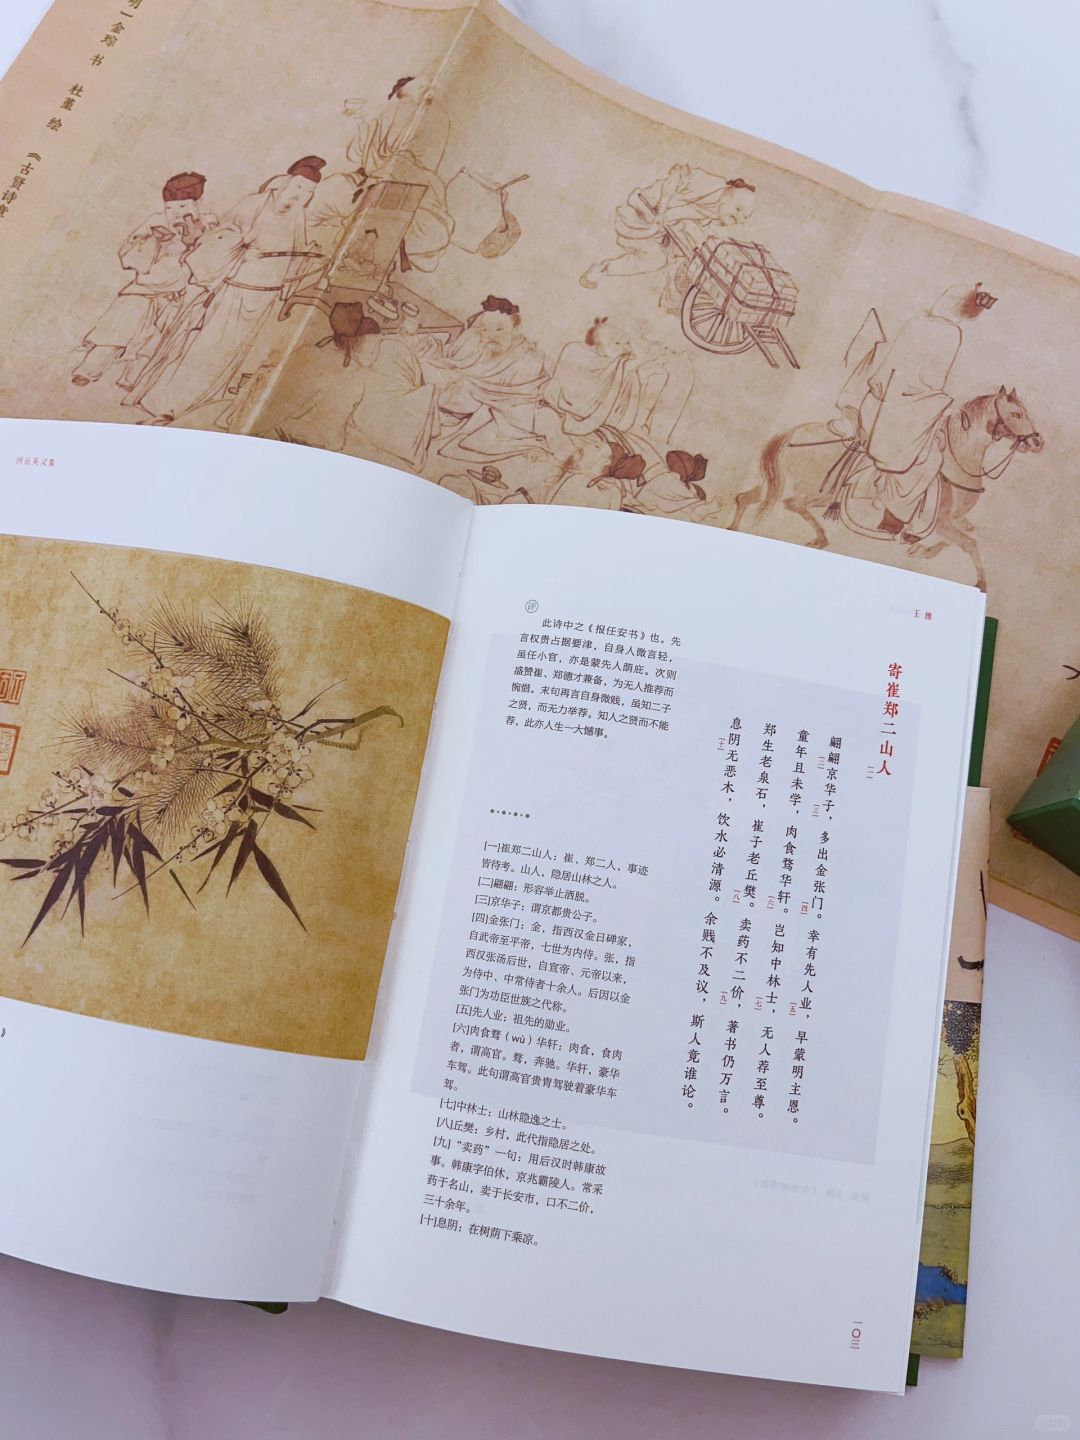 明—金琮 书 杜堇 绘 《古贤诗意
河岳英灵集
》
王维
寄崔郑二山人[一]
翩翩[二]京华子[三]，多出金张门[四]。幸有先人业[五]，早蒙明主恩。
童年且未学，肉食骛华轩[六]。岂知中林士[七]，无人荐至尊。
郑生老泉石，崔子老丘樊[八]。卖药不二价[九]，著书仍万言。
息阴[十]无恶木，饮水必清源。余贱不及议，斯人竟谁论。
评
此诗中之《报任安书》也。先
言权贵占据要津，自身人微言轻，
虽任小官，亦是蒙先人荫庇。次则
盛赞崔、郑德才兼备，为无人推荐而
惋惜。末句再言自身微贱，虽知二子
之贤，而无力举荐。知人之贤而不能
荐，此亦人生一大憾事。
[一]崔郑二山人：崔、郑二人，事迹
皆待考。山人，隐居山林之人。
[二]翩翩：形容举止洒脱。
[三]京华子：谓京都贵公子。
[四]金张门：金，指西汉金日磾家，
自武帝至平帝，七世为内侍。张，指
西汉张汤后世，自宣帝、元帝以来，
为侍中、中常侍者十余人。后因以金
张门为功臣世族之代称。
[五]先人业：祖先的勋业。
[六]肉食骛（wù）华轩：肉食，食肉
者，谓高官。骛，奔驰。华轩，豪华
车驾。此句谓高官贵胄驾驶着豪华车
驾。
[七]中林士：山林隐逸之士。
[八]丘樊：乡村，此代指隐居之处。
[九]“卖药”一句：用后汉时韩康故
事。韩康字伯休，京兆霸陵人。常采
药于名山，卖于长安市，口不二价，
三十余年。
[十]息阴：在树荫下乘凉。
一〇三
小红书